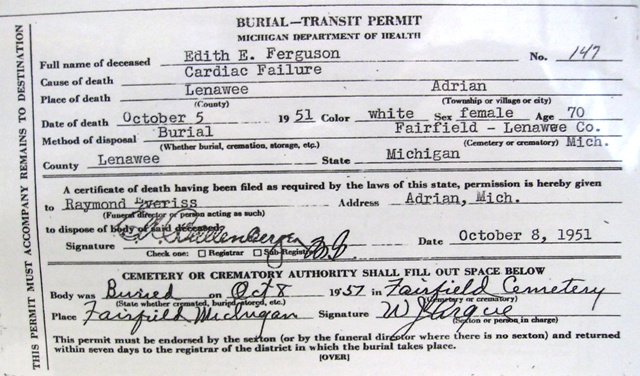 BURIAL—TRANSIT PERMIT
MICHIGAN DEPARTMENT OF HEALTH
Full name of deceased Edith E. Ferguson No. 147
Cause of death Cardiac Failure
Place of death Lenawee Adrian
(County) (Township or village or city)
Date of death October 5 1951 Color white Sex female Age 70
Method of disposal Burial Fairfield - Lenawee Co. Mich.
(Whether burial, cremation, storage, etc.) (Cemetery or crematory)
County Lenawee State Michigan
A certificate of death having been filed as required by the laws of this state, permission is hereby given
to Raymond Address Adrian, Mich.
(Funeral director or person acting as such)
to dispose of body of said deceased.
Signature Date October 8, 1951
Check one: Registrar Sub-Registrar
CEMETERY OR CREMATORY AUTHORITY SHALL FILL OUT SPACE BELOW
Body was Buried on Oct 8 1951 in Fairfield Cemetery
(State whether cremated, buried, stored, etc.) (Cemetery or crematory)
Place Fairfield Michigan Signature
(Sexton or person in charge)
This permit must be endorsed by the sexton (or by the funeral director where there is no sexton) and returned
within seven days to the registrar of the district in which the burial takes place.
[OVER]
THIS PERMIT MUST ACCOMPANY REMAINS TO DESTINATION